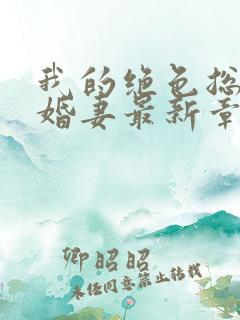 我的绝色总
婚妻最新章
卿昭昭
未经同意禁止转载